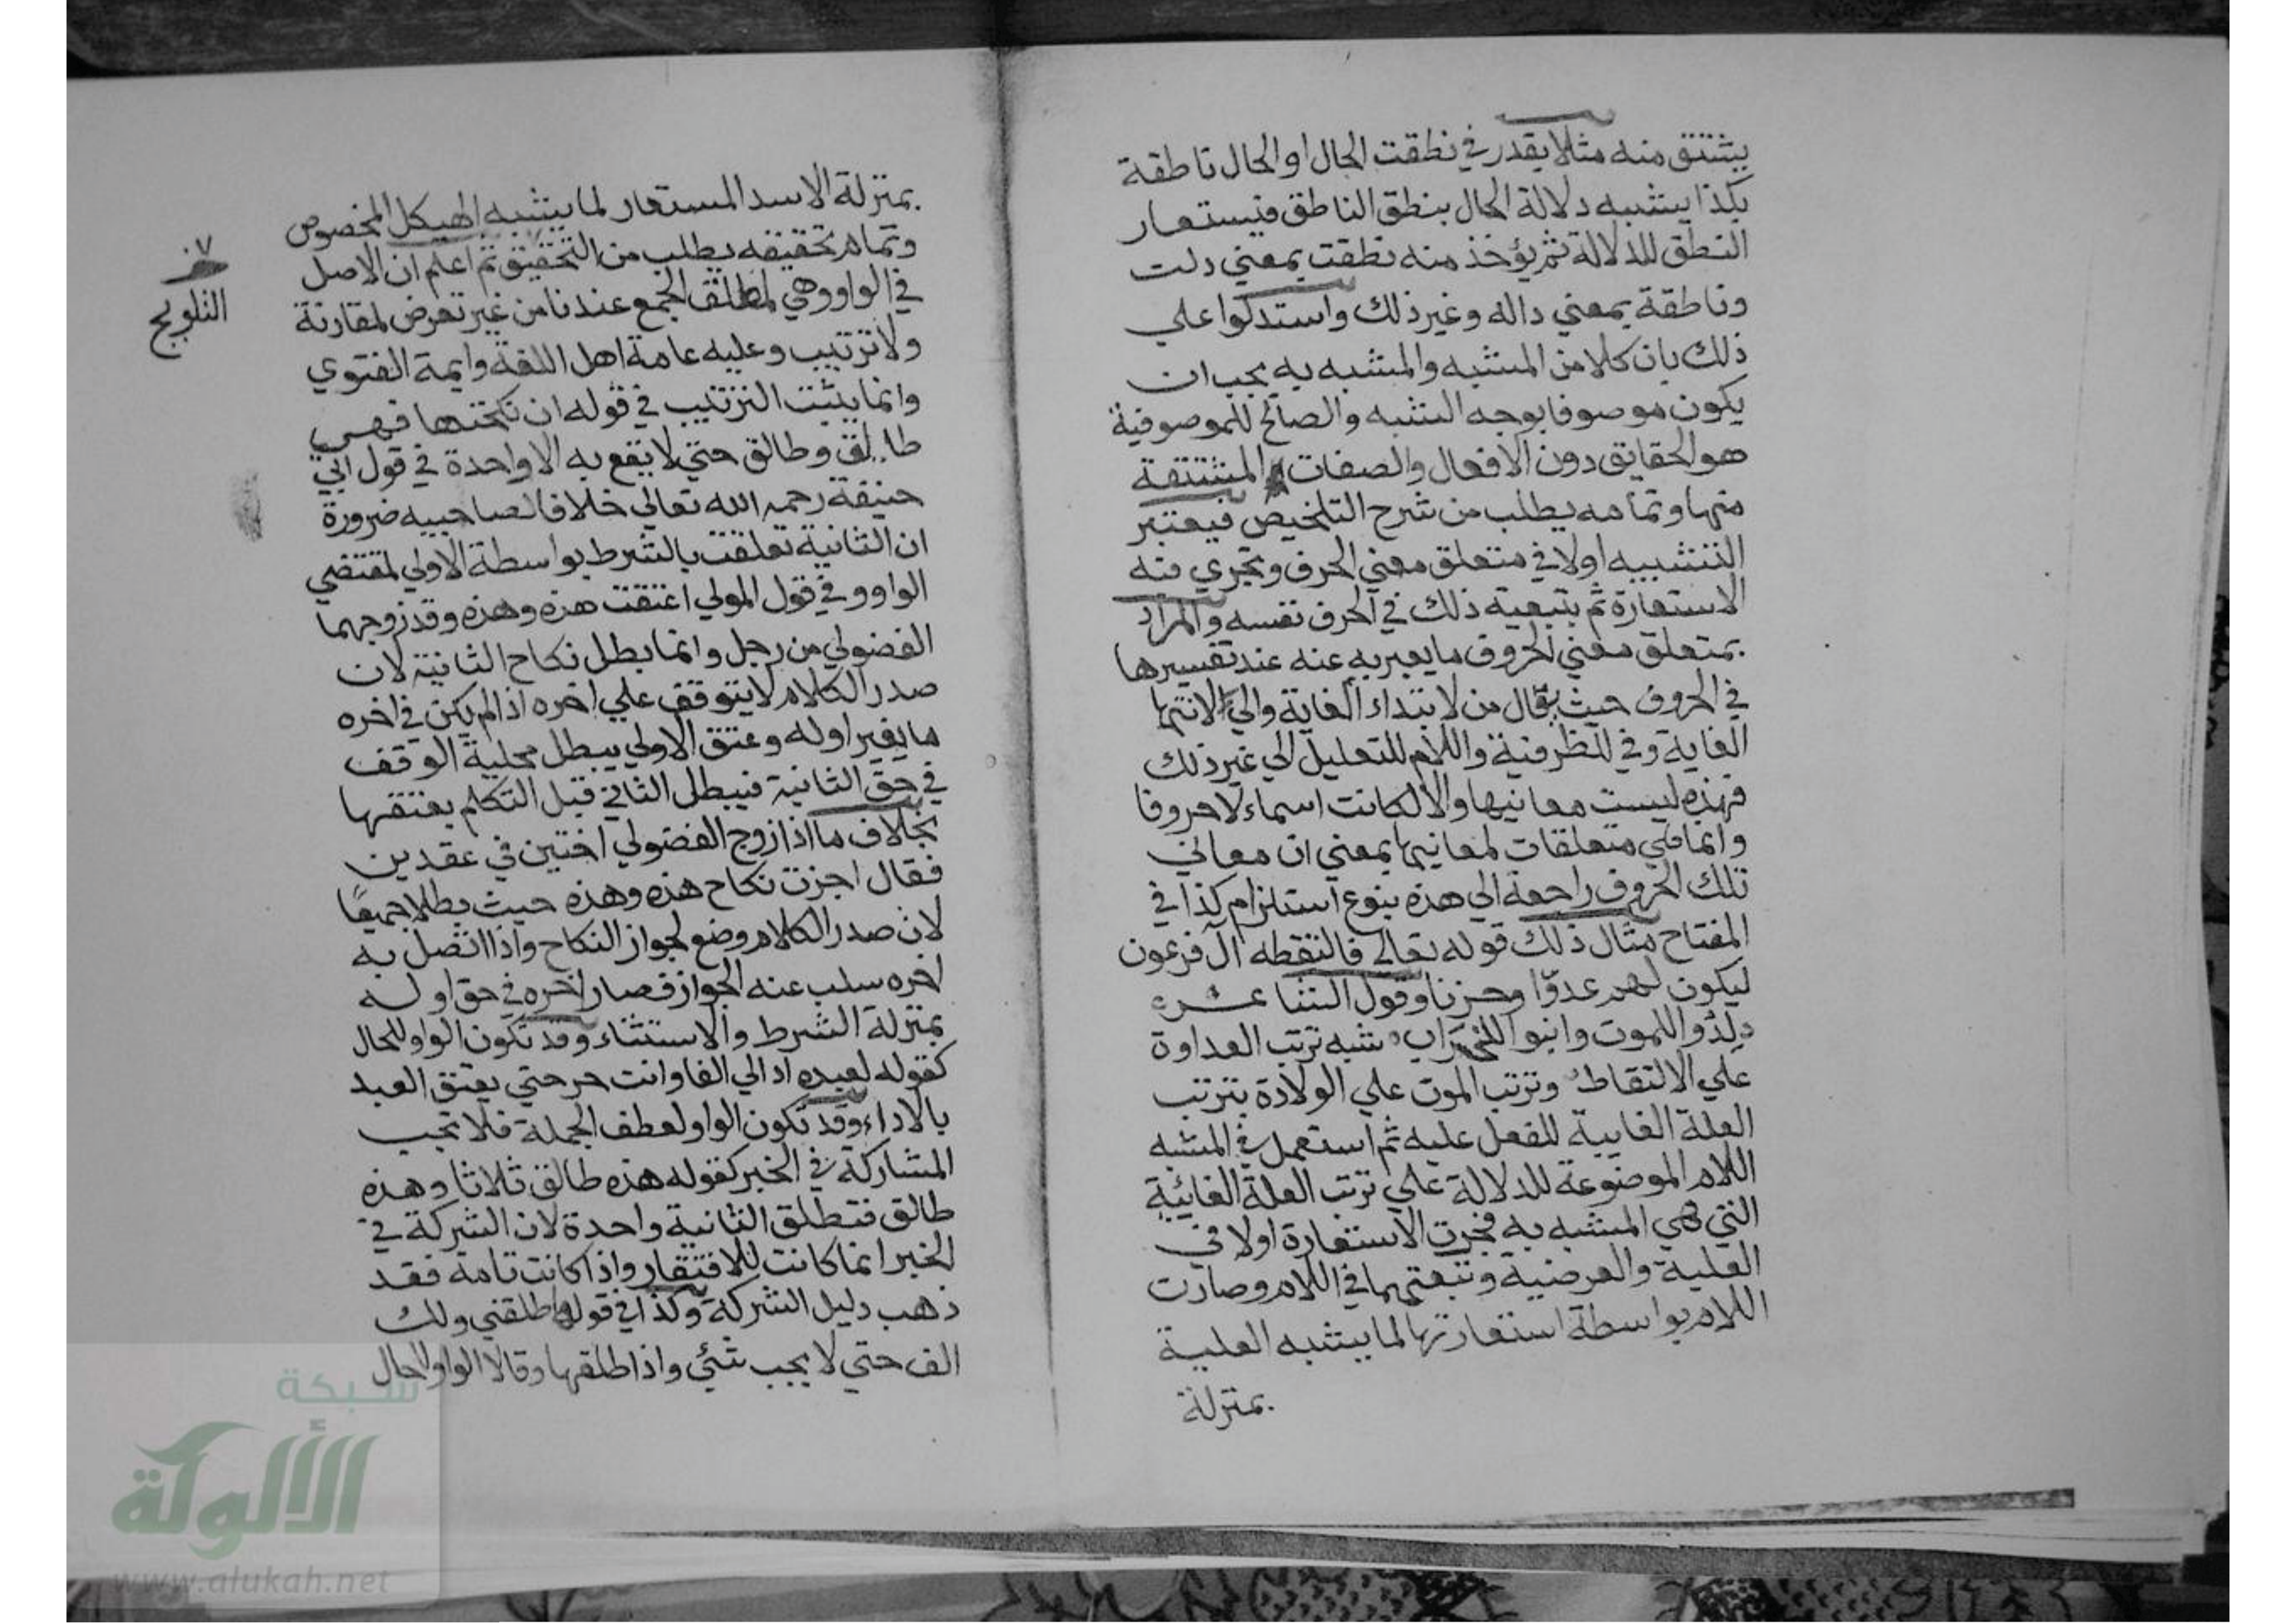 يشتق منه مثلا يقدر في نطقت الحال او الحال ناطقة
بكذا يشبه دلالة الحال بنطق الناطق فيستعار
النطق للدلالة ثم يؤخذ منه نطقت بمعني دلت
وناطقة بمعني داله وغير ذلك واستدلوا علي
ذلك بان كلا من المشبه والمشبه به يجب ان
يكون موصوفا بوجه الشبه والصالح للموصوفية
هو الحقايق دون الافعال والصفات المشتقة
منها وتمامه يطلب من شرح التلخيص فيعتبر
التشبيه اولا في متعلق معني الحرف وتجري فيه
الاستعارة ثم بتبعية ذلك في الحرف نفسه والمراد
بمتعلق معني الحروف ما يعبر به عنه عند تفسيرها
في الحروف حيث يقال من لابتداء الغاية والي لانتها
الغاية وفي للظرفية واللام للتعليل الي غير ذلك
فهذه ليست معانيها والا لكانت اسماء لا حروفا
وانما هي متعلقات لمعانيها بمعني ان معاني
تلك الحروف راجعة الي هذه بنوع استلزام كذا في
المفتاح مثال ذلك قوله تعالي فالتقطه آل فرعون
ليكون لهم عدوّا وحزنا وقول الشاعر
لدوا للموت وابنوا للخراب شبه ترتب العداوة
علي الالتقاط وترتب الموت علي الولادة بترتب
العلة الغايية للفعل عليه ثم استعمل في المشبه
اللام الموضوعة للدلالة علي ترتب العلة الغائية
التي هي المشبه به فجرت الاستعارة اولا في
العلية والعرضية وتبعتهما في اللام وصارت
اللام بواسطة استعارتها لما يشبه العلية
بمنزلة
بمنزلة الاسد المستعار لما يشبه الهيكل المخصوص
وتمام تحقيقه يطلب من التحقيق ثم اعلم ان الاصل
في الواو وهي لمطلق الجمع عندنا من غير تعرض لمقارنة
ولا ترتيب وعليه عامة اهل اللغة وايمة الفتوي
وانما يثبت الترتيب في قوله ان نكحتها فهي
طالق وطالق حتي لا يقع به الا واحدة في قول ابي
حنيفة رحمه الله تعالي خلافا لصاحبيه ضرورة
ان الثانية تعلقت بالشرط بواسطة الاولي لمقتضي
الواو وفي قول المولي اعتقت هذه وهذه وقد زوجهما
الفضولي من رجل وانما بطل نكاح الثانية لان
صدر الكلام لا يتوقف علي اخره اذا لم يكن في اخره
ما يغير اوله وعتق الاولي يبطل محلية الوقف
في حق الثانية فيبطل الثاني قبل التكلم بعتقها
بخلاف ما اذا زوج الفضولي اختين في عقدين
فقال اجزت نكاح هذه وهذه حيث بطلا جميعًا
لان صدر الكلام وضع لجواز النكاح واذا اتصل به
اخره سلب عنه الجواز فصار اخره في حق اوله
بمنزلة الشرط والاستثناء وقد تكون الواو للحال
كقوله لعبده اد الي الفا وانت حر حتي يعتق العبد
بالاداء وقد تكون الواو لعطف الجملة فلا تجب
المشاركة في الخبر كقوله هذه طالق ثلاثا وهذه
طالق فتطلق الثانية واحدة لان الشركة في
الخبر انما كانت للافتقار واذا كانت تامة فقد
ذهب دليل الشركة وكذا في قولها طلقني ولك
الف حتي لا يجب شئي واذا طلقها وقالا الواو للحال
٧٠
التلويح
شبكة
الألوكة
www.alukah.net